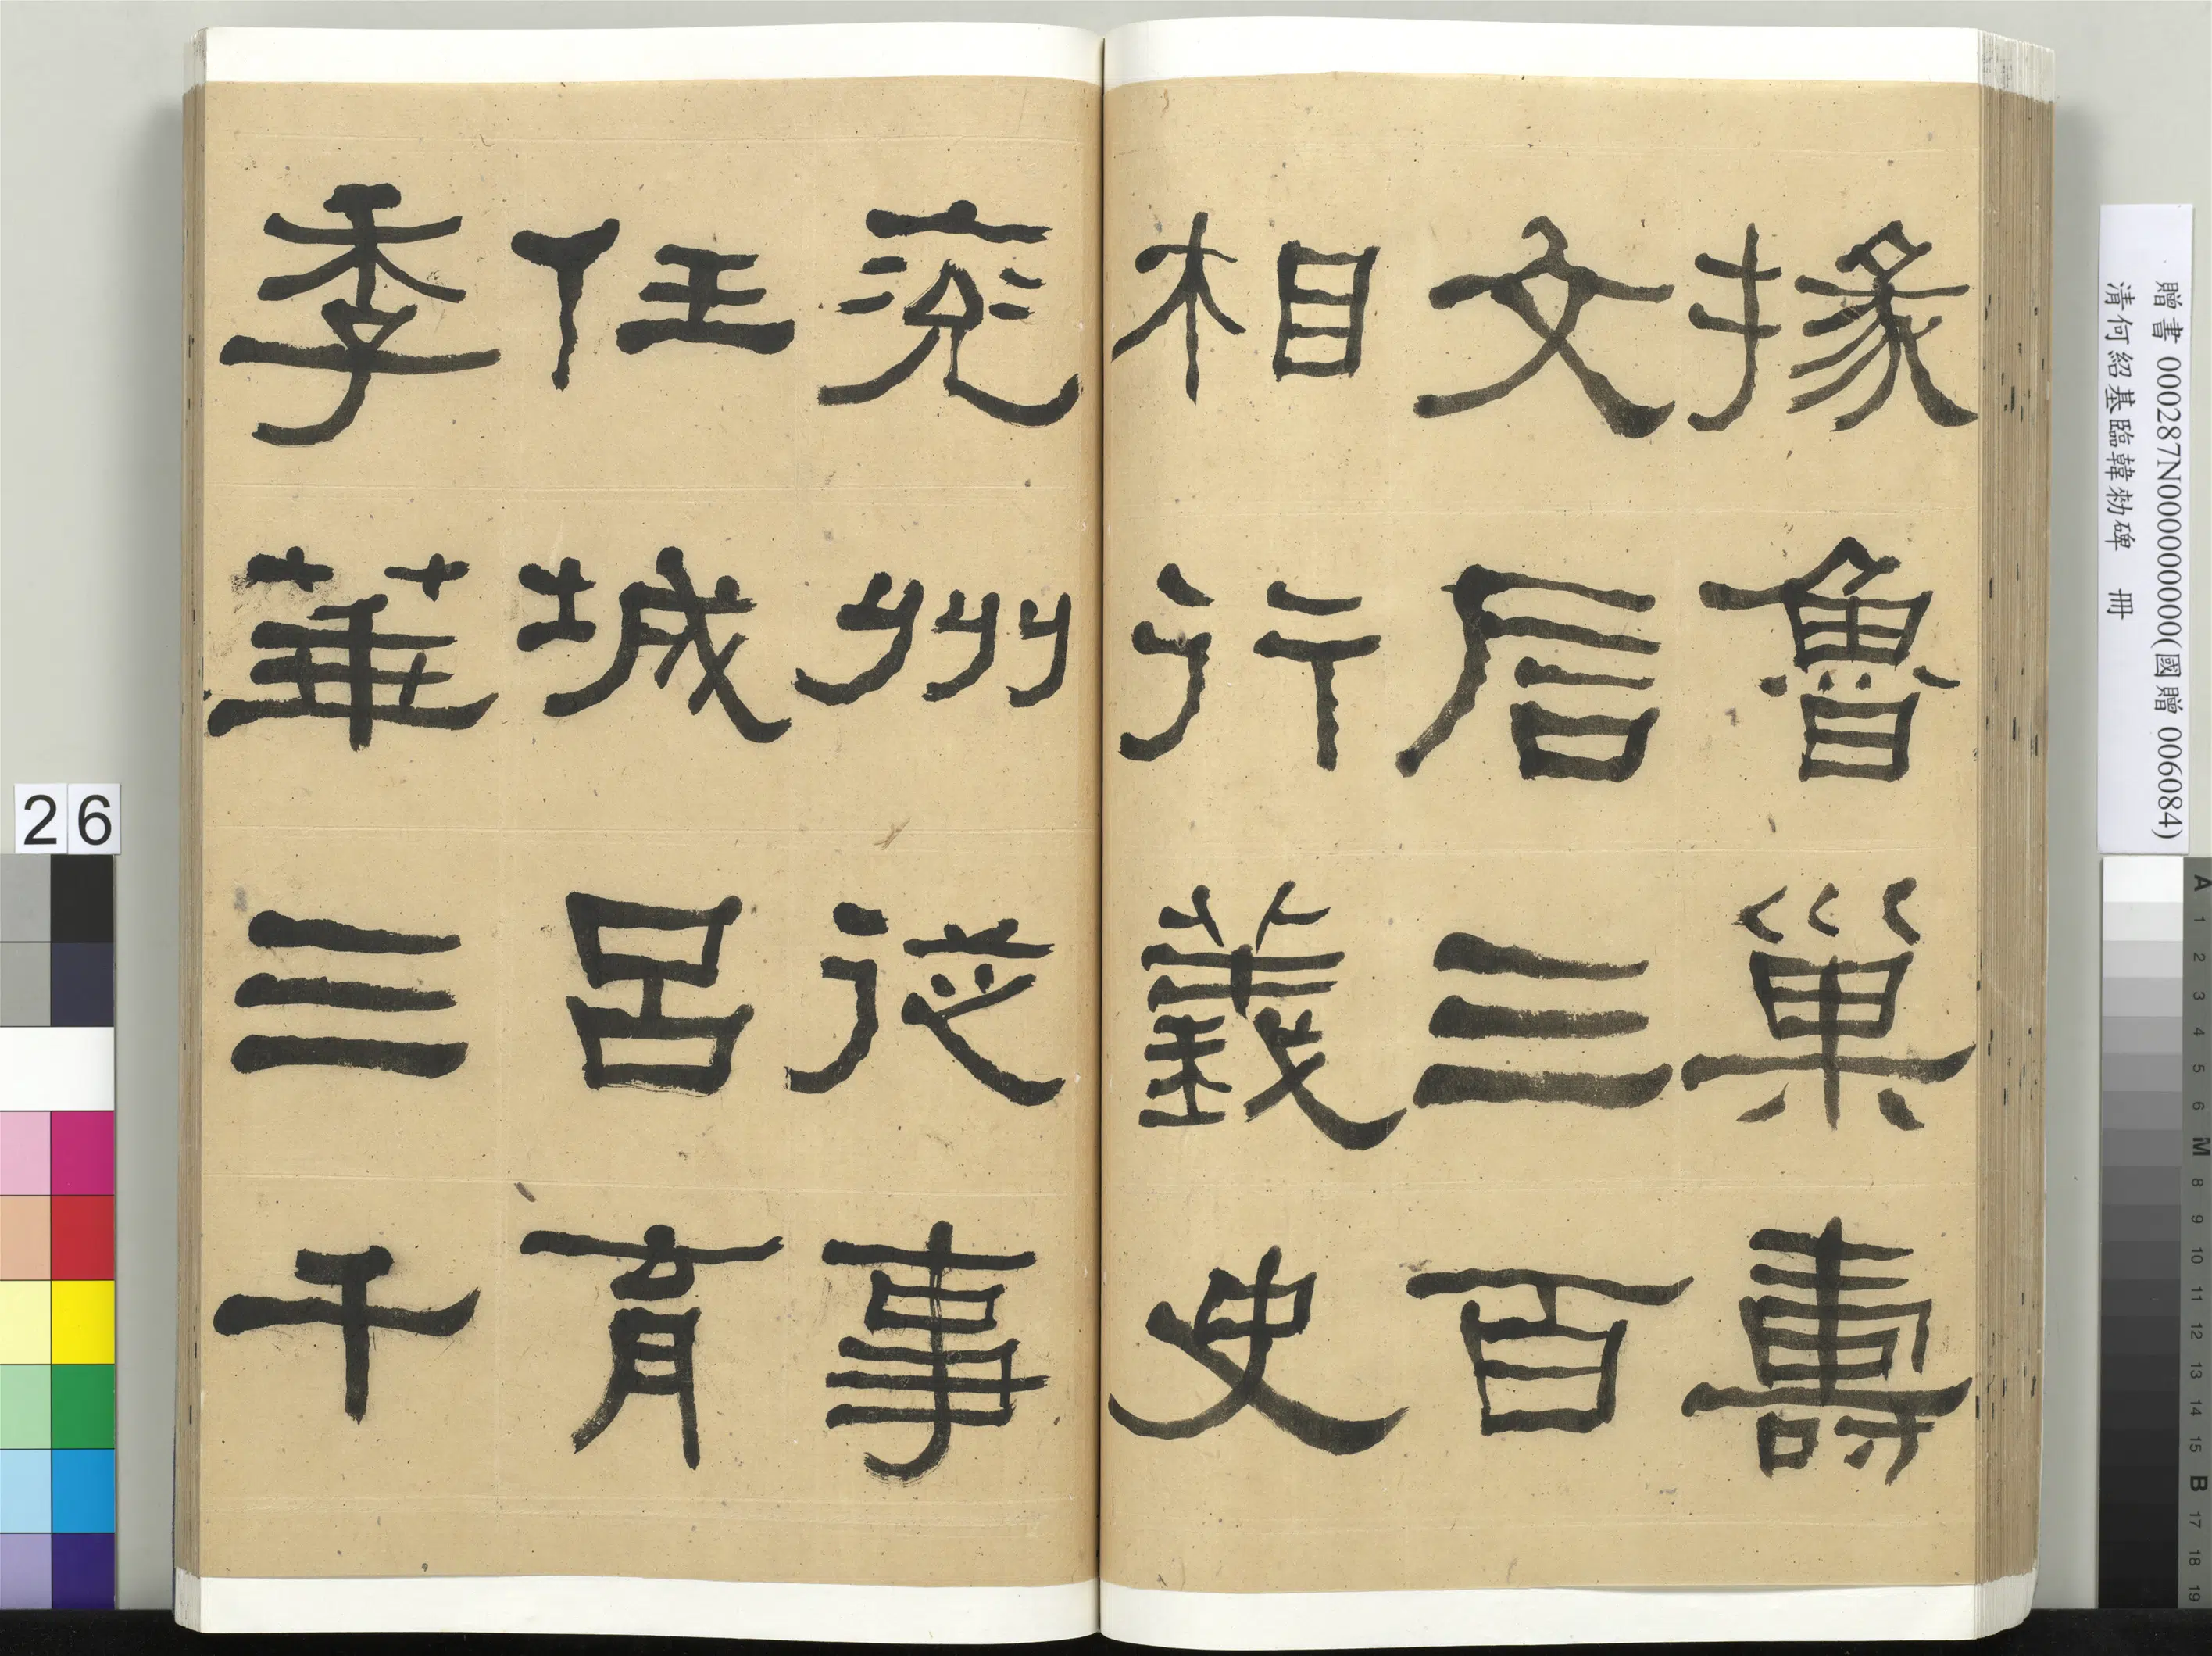 掾魯巢壽
文后三百
相行義史
兗州從事
任城呂育
季華三千
贈書 000287N000000000(國贈 006084)
清何紹基臨韓勑碑 冊
26
A 1 2 3 4 5 6 M 8 9 10 11 12 13 14 15 B 17 18 19